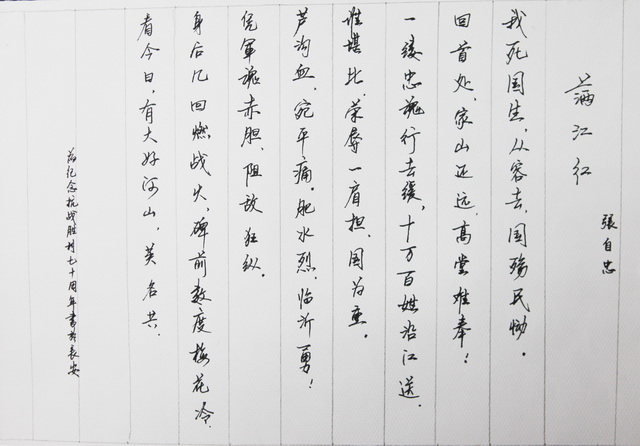 满江红
張自忠
我死国生，从容去，国殇民恸。
回首处，家山还远，高堂难奉！
一缕忠魂行去缓，十万百姓沿江送，
谁堪比，荣辱一肩担，国为重。
芦沟血，宛平痛。肥水烈，临沂勇！
凭軍魂赤胆，阻敌狂纵。
身后几回燃战火，碑前数度梅花冷，
看今日，有大好河山，英名共。
为纪念抗战胜利七十周年書於長安